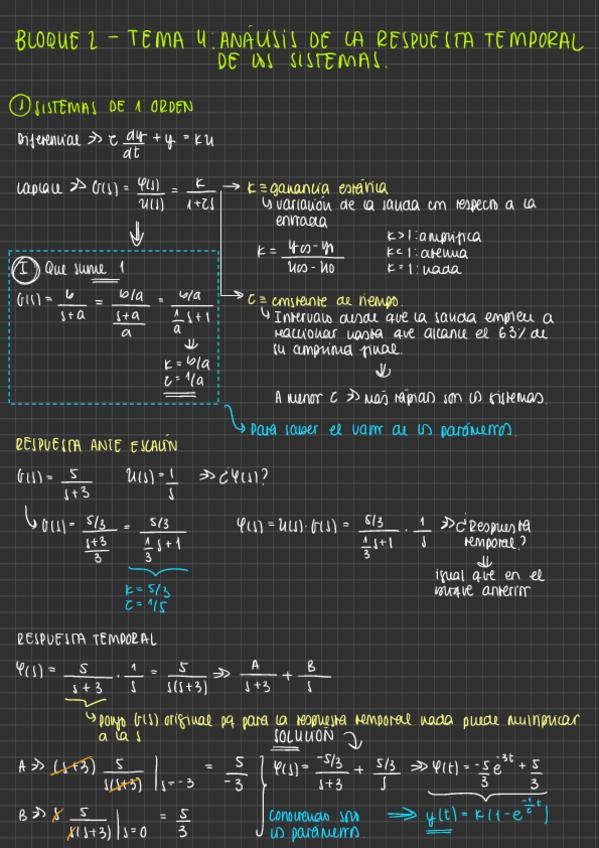 BLOQUE 2 - TEMA 4: ANÁLISIS DE LA RESPUESTA TEMPORAL
DE LOS SISTEMAS.
① SISTEMAS DE 1 ORDEN
Diferencial ≫ τ dy/dt + y = Ku
Laplace ≫ G(s) = Y(s)/U(s) = K/(1+τs) → K ≡ ganancia estática
↳ variación de la salida con respecto a la
entrada
K = (y∞ - y0)/(u∞ - u0)
K>1: amplifica
K<1: atenúa
K=1: nada
Ⓘ Que sume 1
G(s) = b/(s+a) = (b/a)/((s+a)/a) = (b/a)/(1/a s+1)
K = b/a
τ = 1/a
τ ≡ constante de tiempo.
↳ Intervalo desde que la salida empieza a
reaccionar hasta que alcance el 63% de
su amplitud final.
A menor τ ≫ más rápidos son los sistemas.
↳ Para saber el valor de los parámetros.
RESPUESTA ANTE ESCALÓN
G(s) = 5/(s+3) U(s) = 1/s ≫ ¿Y(s)?
↳ G(s) = (5/3)/((s+3)/3) = (5/3)/(1/3 s+1)
K = 5/3
τ = 1/5
Y(s) = U(s)·G(s) = (5/3)/(1/3 s+1) · 1/s ≫ ¿Respuesta
temporal?
igual que en el
bloque anterior
RESPUESTA TEMPORAL
Y(s) = 5/(s+3) · 1/s = 5/(s(s+3)) ≫ A/(s+3) + B/s
↳ pongo G(s) original pq para la respuesta temporal nada puede multiplicar
a la s
SOLUCIÓN
A ≫ (s+3) 5/(s(s+3)) |s=-3 = 5/-3
B ≫ s 5/(s(s+3)) |s=0 = 5/3
Y(s) = (-5/3)/(s+3) + (5/3)/s ≫ Y(t) = -5/3 e^(-3t) + 5/3
Conociendo son
los parámetros ⇒ y(t) = K(1-e^(-1/τ t))